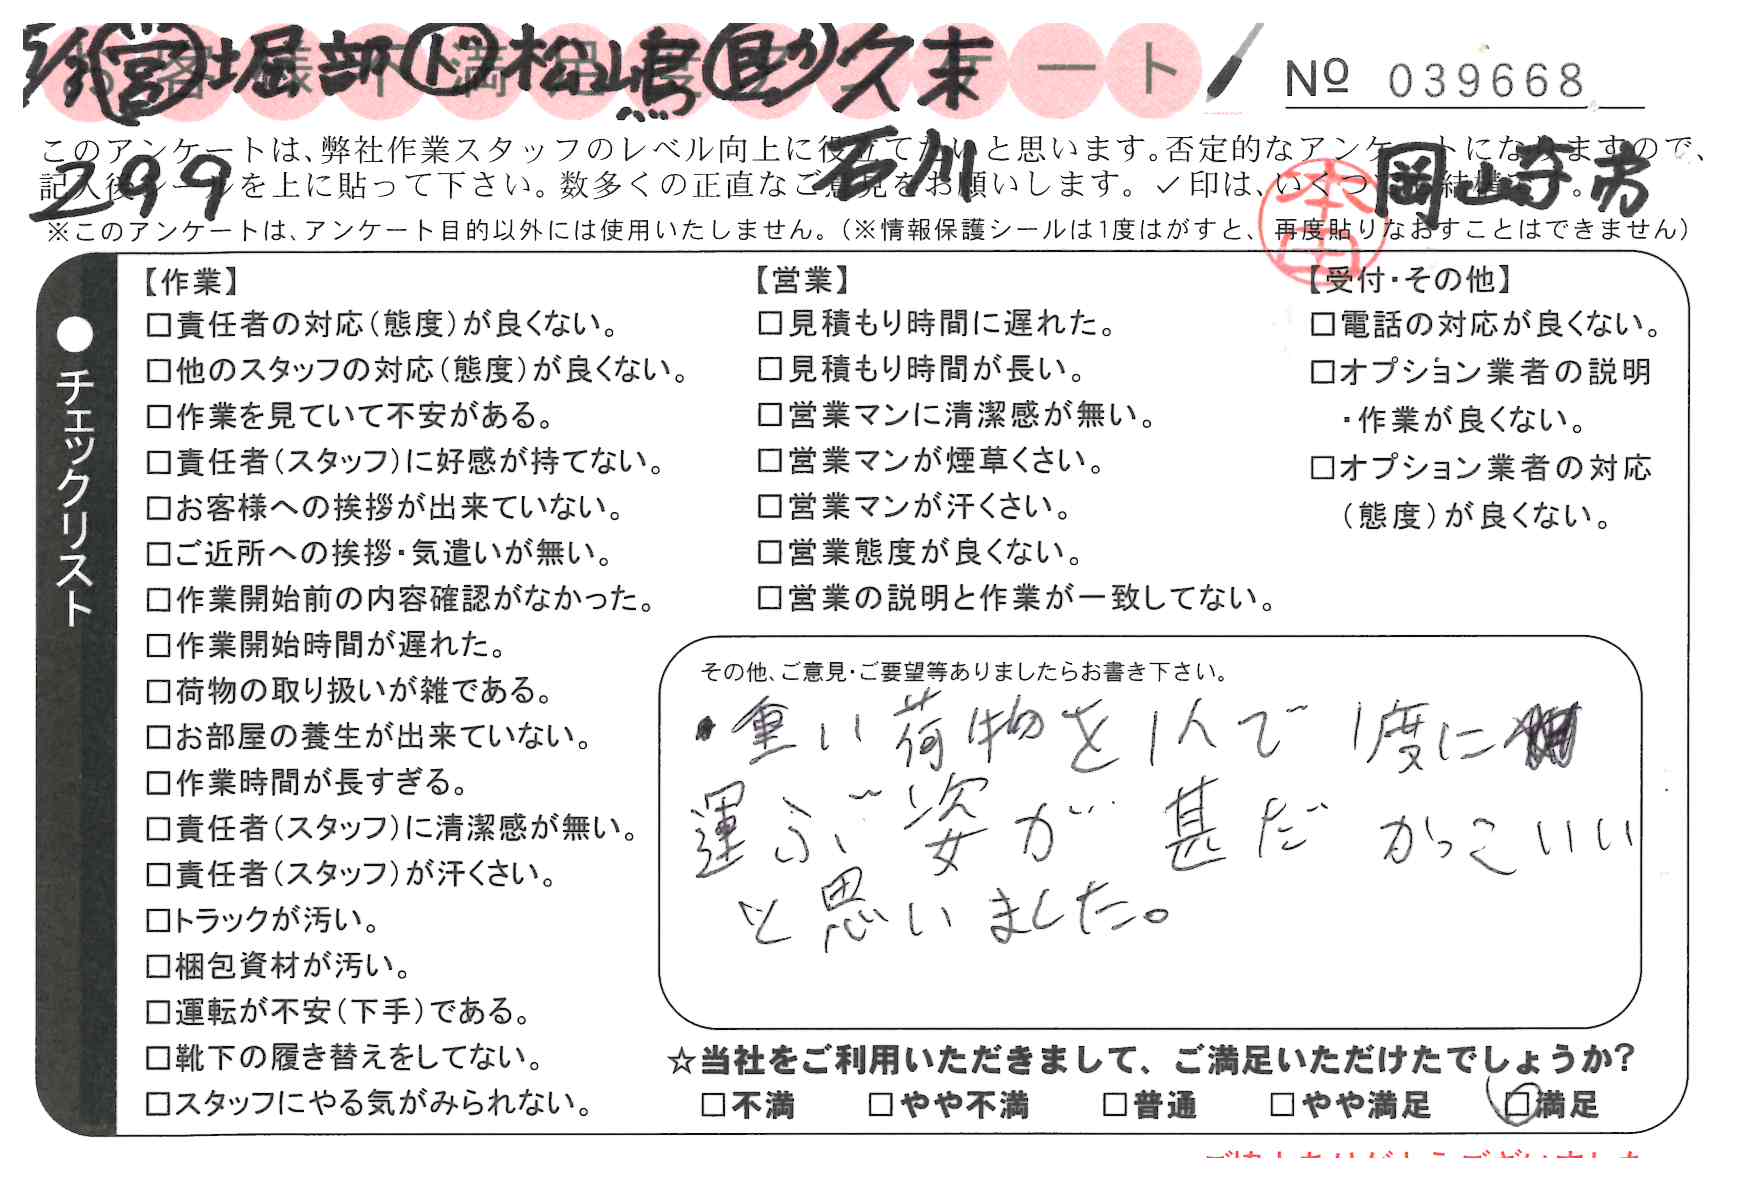 5/1 営 堀部 ド 松嶋 見 久末
お客様不満足度アンケート
№ 039668
このアンケートは、弊社作業スタッフのレベル向上に役立てたいと思います。否定的なアンケートになりますので、
299 石川 岡山寺市
記入後シールを上に貼って下さい。数多くの正直なご意見をお願いします。✓印は、いくつでも結構です。
※このアンケートは、アンケート目的以外には使用いたしません。(※情報保護シールは1度はがすと、再度貼りなおすことはできません)
本田
●チェックリスト
【作業】
□責任者の対応(態度)が良くない。
□他のスタッフの対応(態度)が良くない。
□作業を見ていて不安がある。
□責任者(スタッフ)に好感が持てない。
□お客様への挨拶が出来ていない。
□ご近所への挨拶・気遣いが無い。
□作業開始前の内容確認がなかった。
□作業開始時間が遅れた。
□荷物の取り扱いが雑である。
□お部屋の養生が出来ていない。
□作業時間が長すぎる。
□責任者(スタッフ)に清潔感が無い。
□責任者(スタッフ)が汗くさい。
□トラックが汚い。
□梱包資材が汚い。
□運転が不安(下手)である。
□靴下の履き替えをしてない。
□スタッフにやる気がみられない。
【営業】
□見積もり時間に遅れた。
□見積もり時間が長い。
□営業マンに清潔感が無い。
□営業マンが煙草くさい。
□営業マンが汗くさい。
□営業態度が良くない。
□営業の説明と作業が一致してない。
【受付・その他】
□電話の対応が良くない。
□オプション業者の説明
・作業が良くない。
□オプション業者の対応
(態度)が良くない。
その他、ご意見・ご要望等ありましたらお書き下さい。
・重い荷物を1人で1度に
運ぶ姿が甚だかっこいい
と思いました。
☆当社をご利用いただきまして、ご満足いただけたでしょうか?
□不満 □やや不満 □普通 □やや満足 □満足